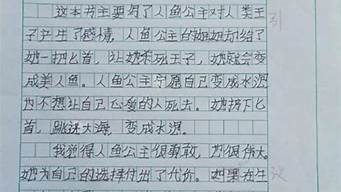 这本书主要写了人鱼公主对人类王
子产生了感情，人鱼公主的姐姐们给了
她一把匕首，让她杀死王子，她就会变
成美人鱼。人鱼公主宁愿自己变成水泡
也不想让自己心爱的人死去。她扔下匕
首，跳进大海，变成水泡。
我觉得人鱼公主很勇敢，也很伟大，
她为自己的选择付出了代价。如果先生